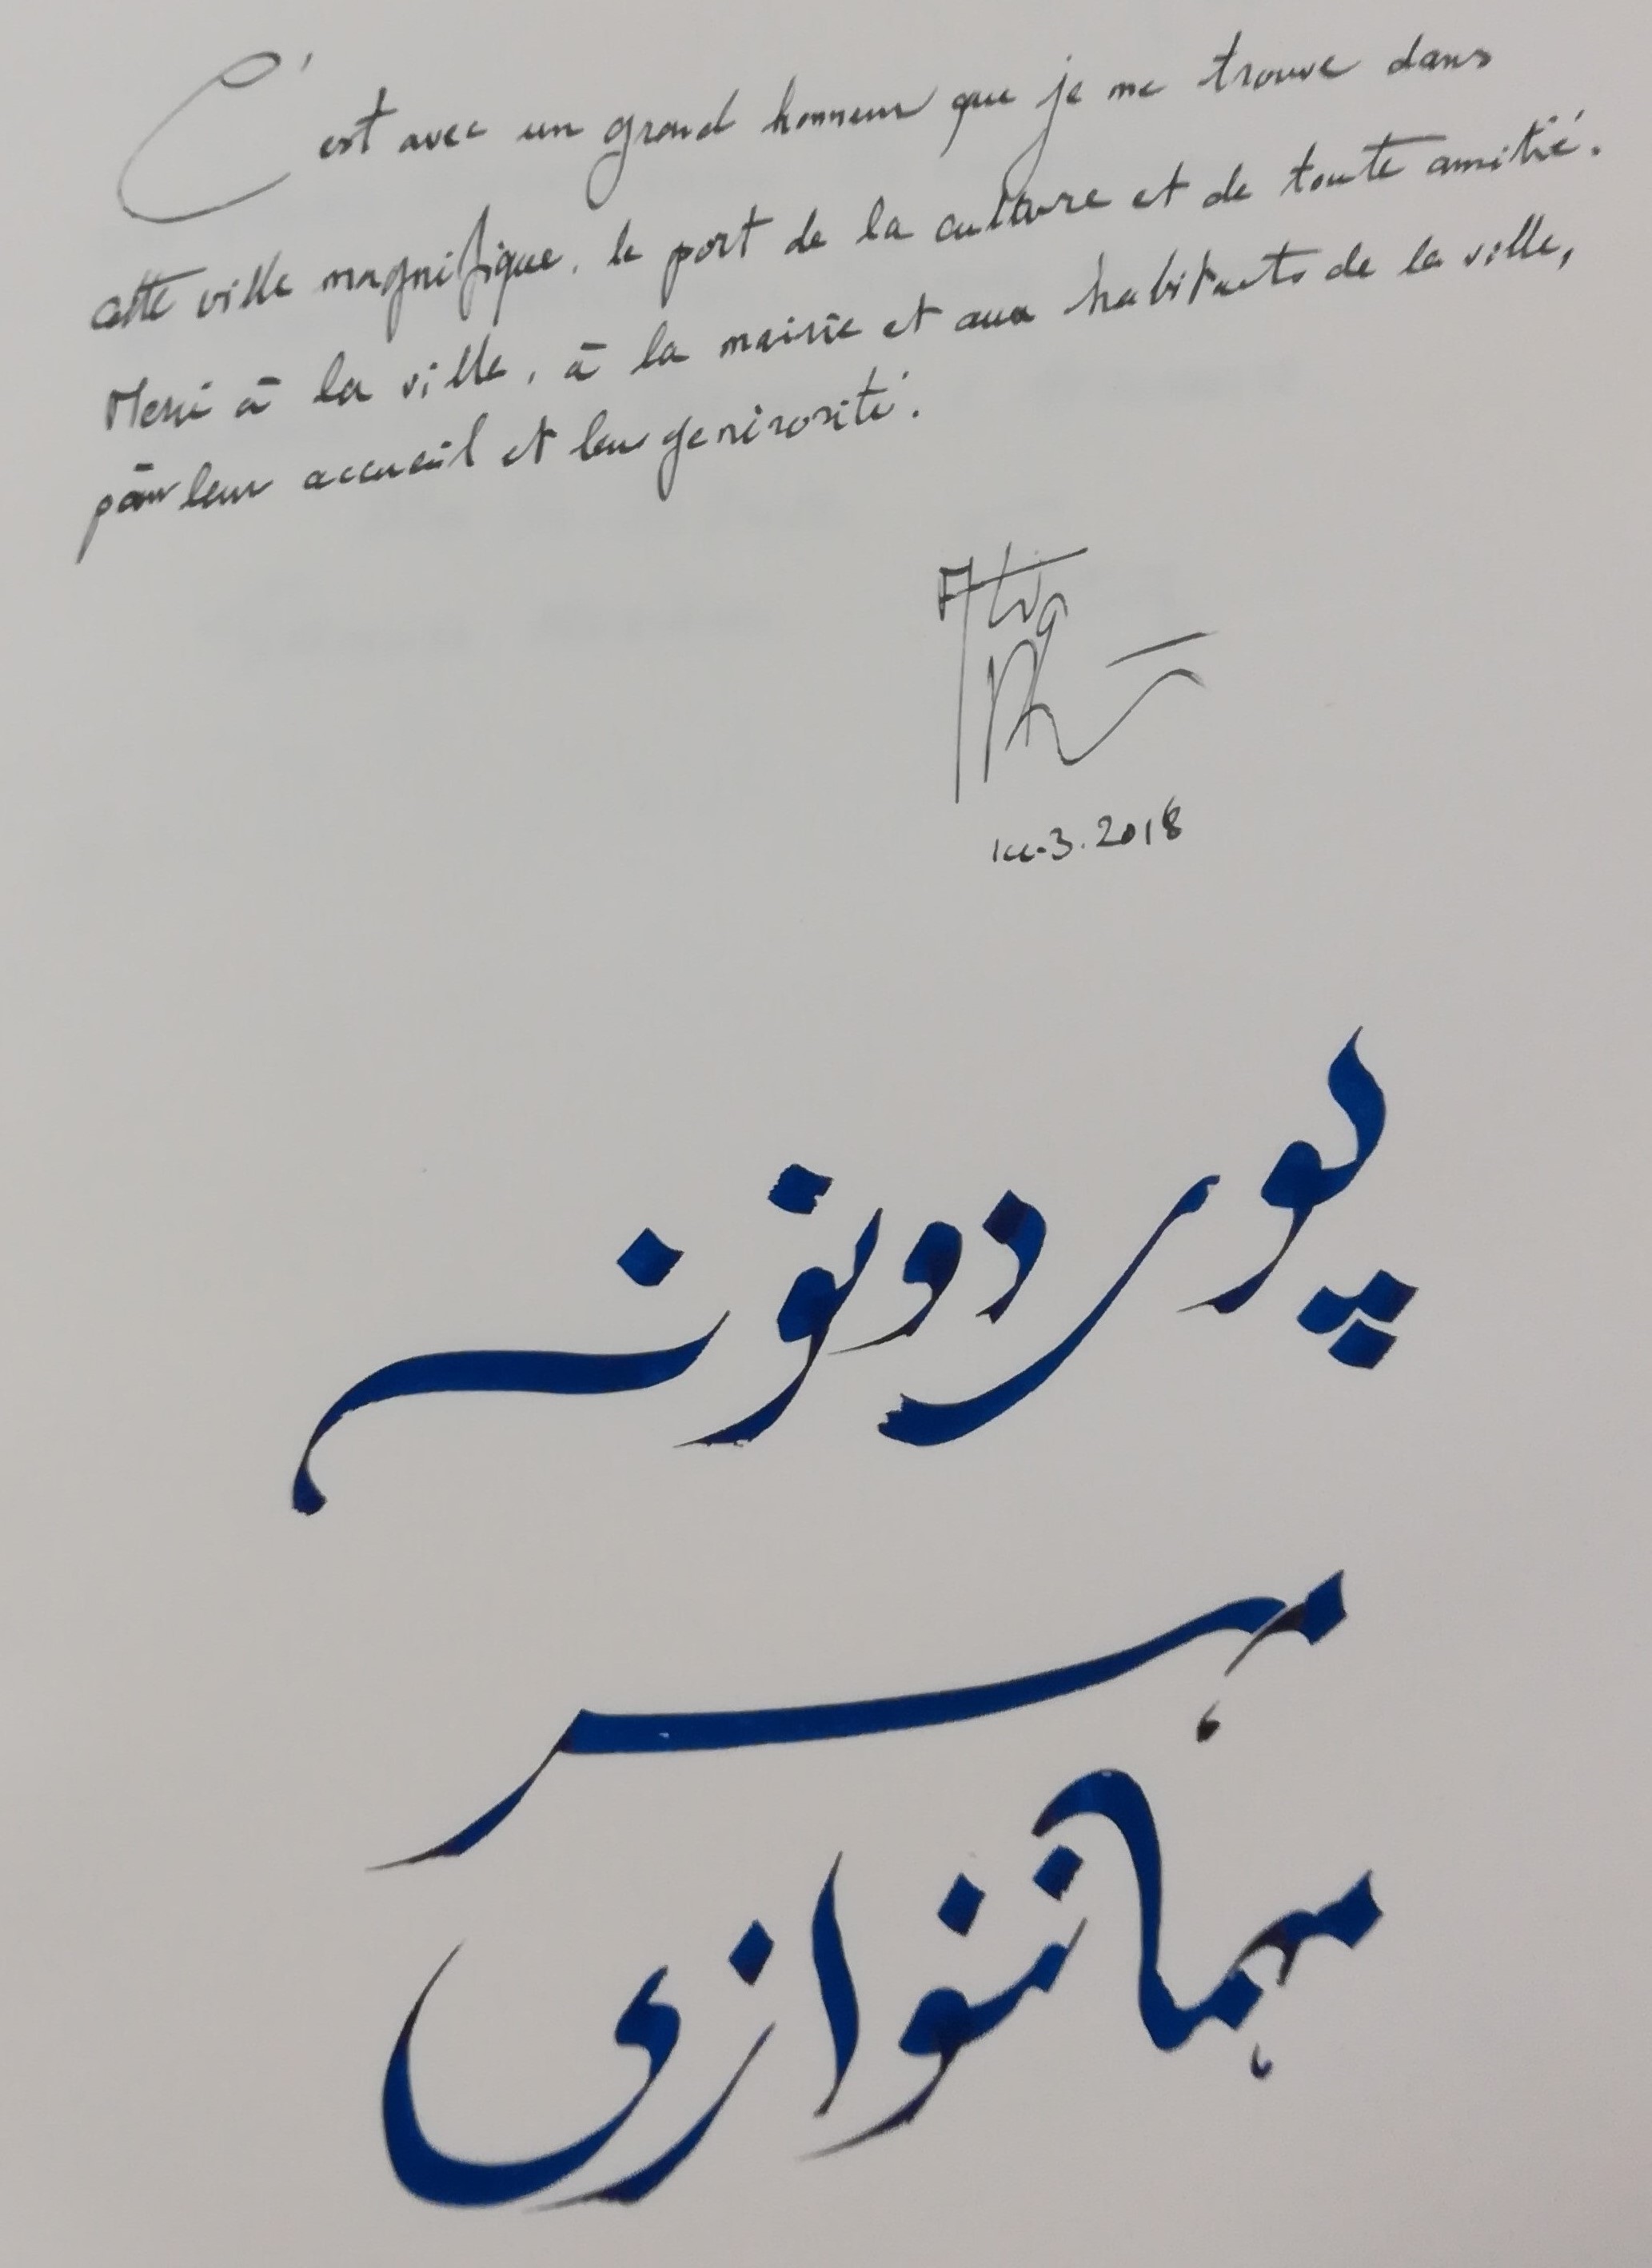 C'est avec un grand honneur que je me trouve dans
cette ville magnifique, le port de la culture et de toute amitié.
Merci à la ville, à la mairie et aux habitants de la ville,
pour leur accueil et leur generosité.
3.2018
پوی دونونه
مهر
مهماننوازی